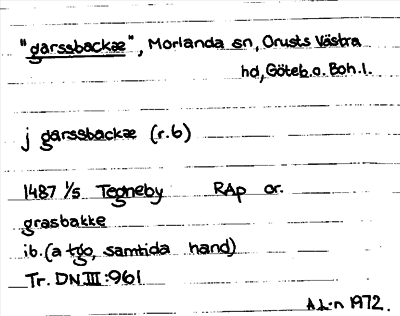 "garssbackæ", Morlanda sn, Orusts Västra
hd, Göteb.o. Boh.l.
j garssbackæ (r.6)
1487 1/5 Tegneby RAp or.
grasbakke
ib. (a tgo, samtida hand)
Tr. DN III:961
A.L-n 1972.